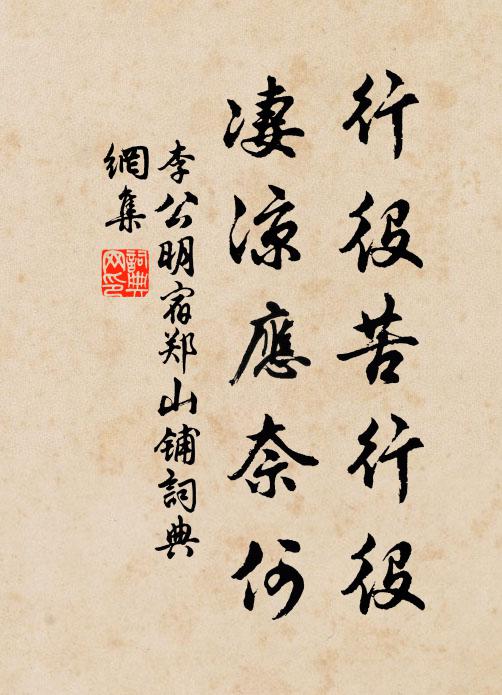 行役苦行役
凄涼應奈何
李公明宿郑山铺詞典
網集
詞典
网印